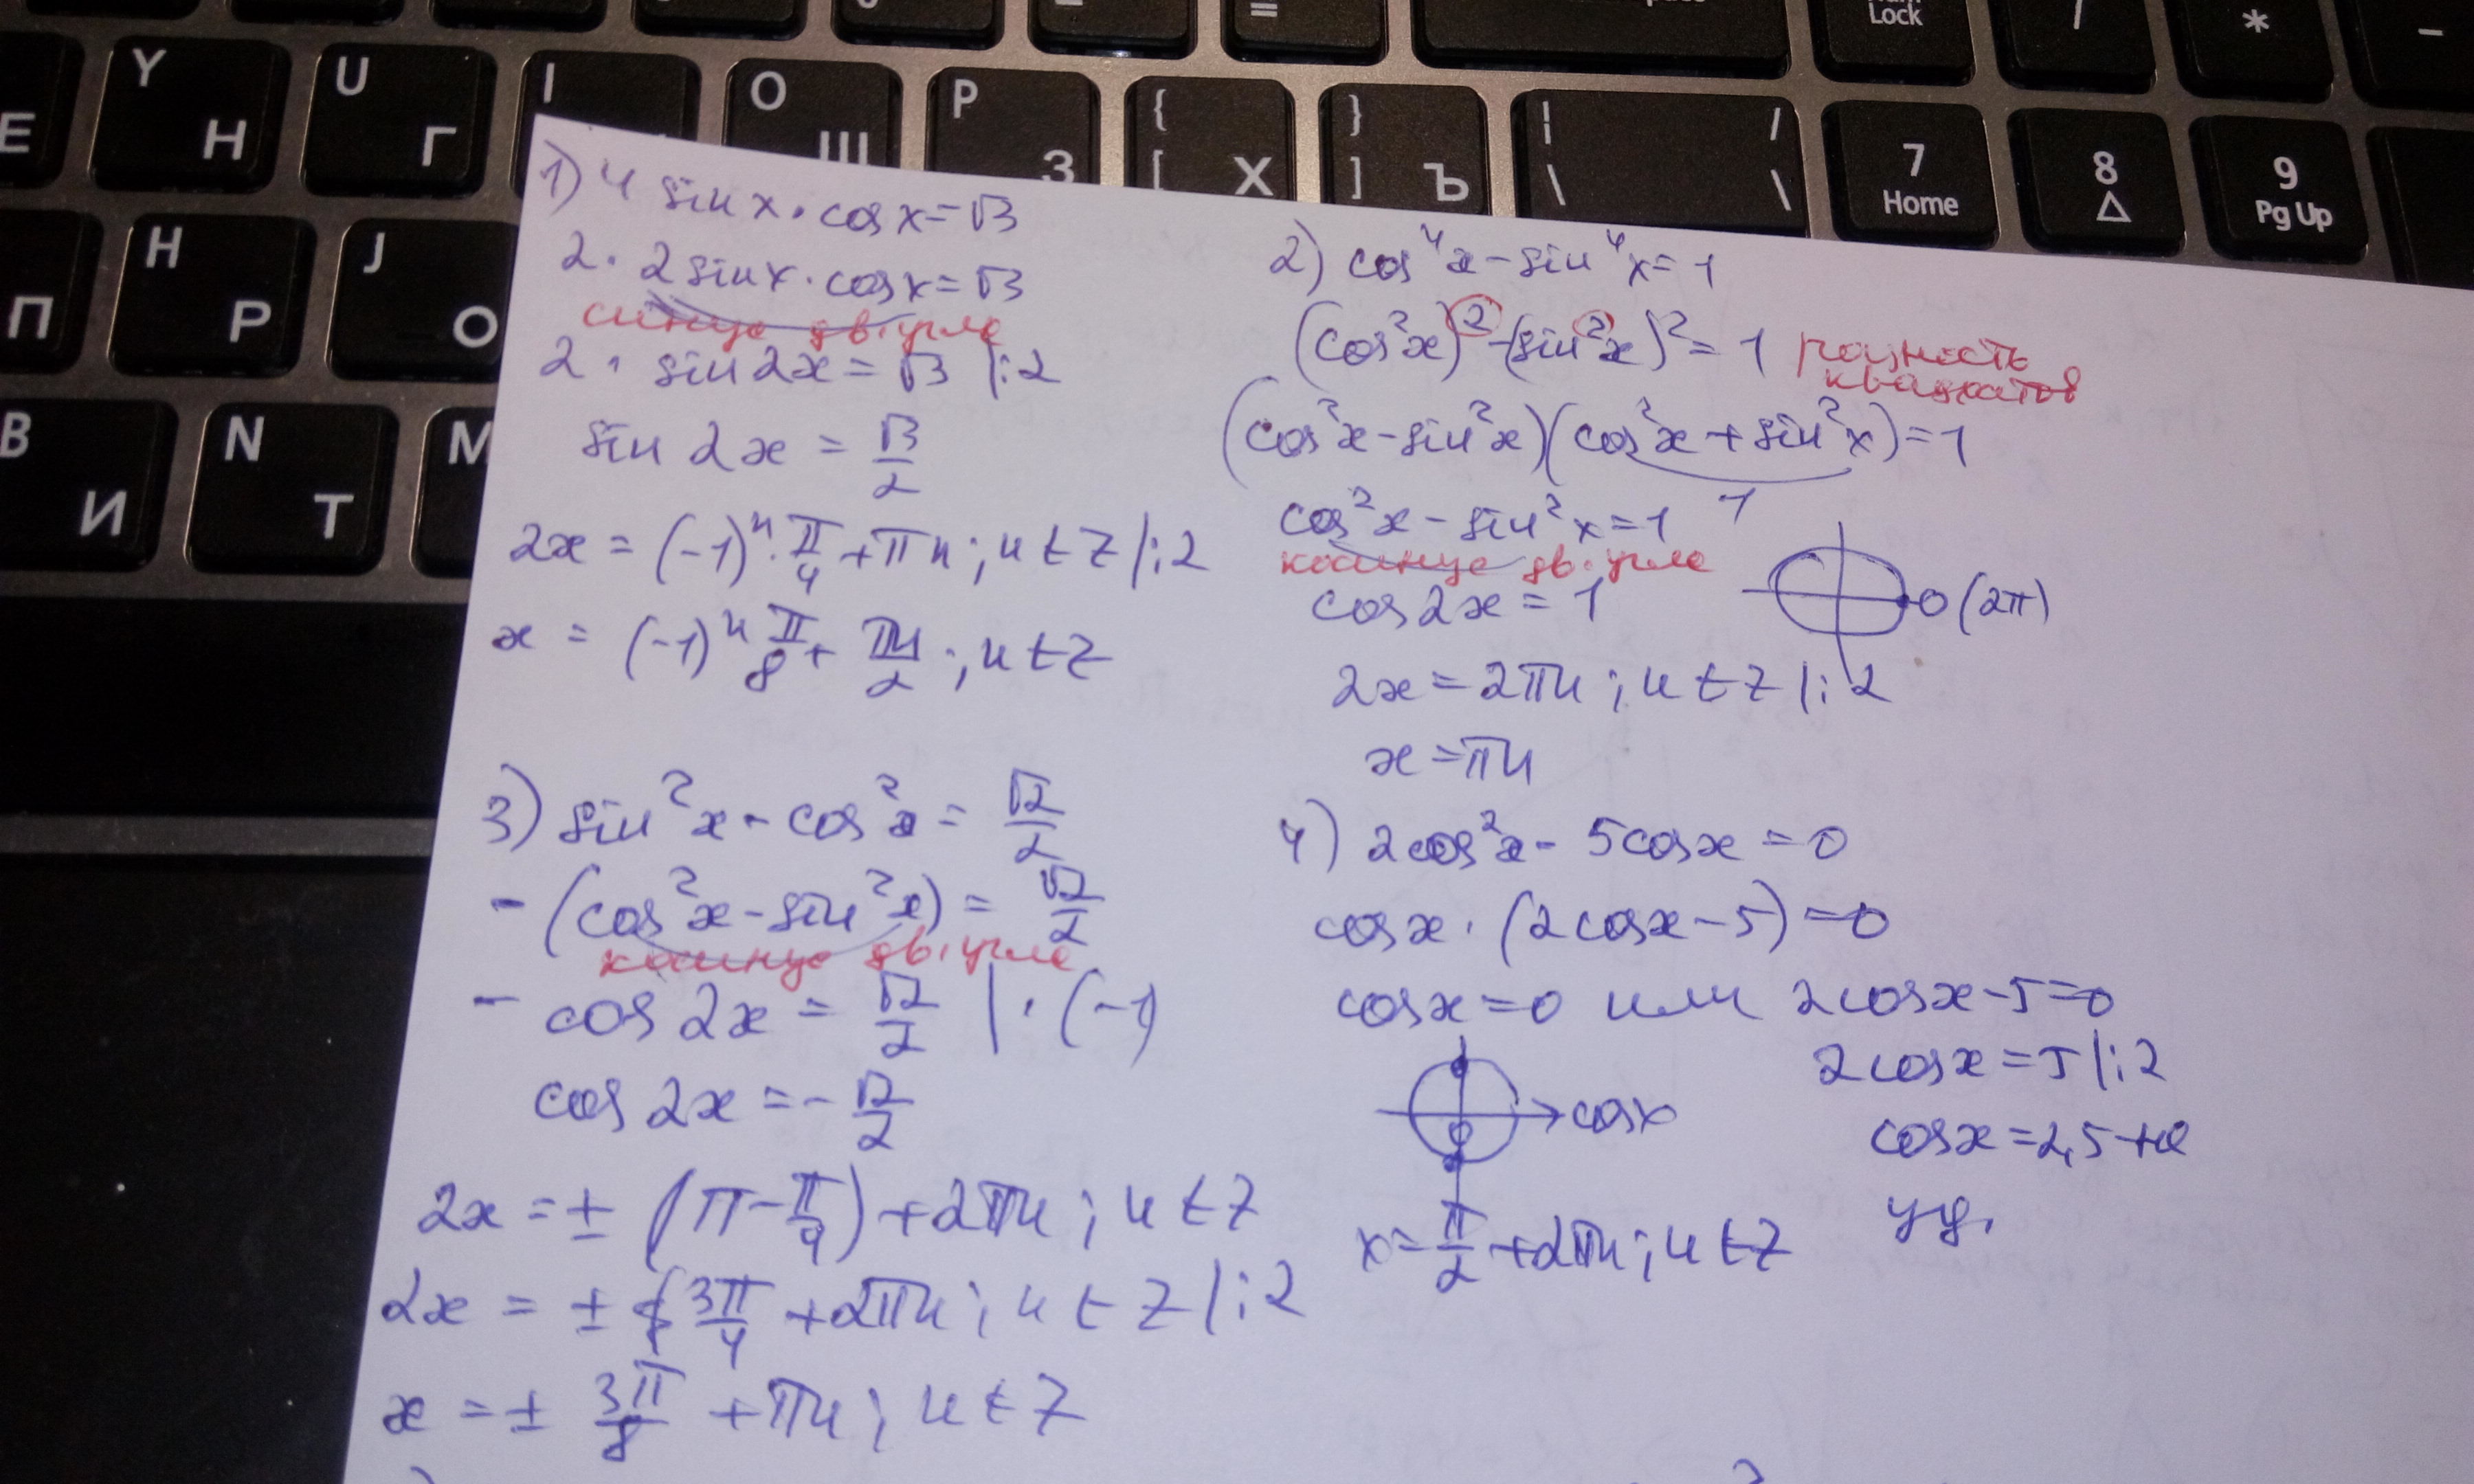 Lock
/
*
-
Y Н
U Г
I
O Ш
P З
{ [ Х
} ] Ъ
| \ / \
7 Home
8
9 Pg Up
Е
П
H Р
J О
В И
N Т
M
1) 4 sin x · cos x = √3
2 · 2 sin x · cos x = √3
синус дв. угла
2 · sin 2x = √3 |:2
sin 2x = √3/2
2x = (-1)ⁿ · π/4 + πn; n ∈ Z |:2
x = (-1)ⁿ π/8 + πn/2; n ∈ Z
2) cos⁴x - sin⁴x = 1
(cos²x)² - (sin²x)² = 1 разность
квадратов
(cos²x - sin²x)(cos²x + sin²x) = 1
1
cos²x - sin²x = 1
косинус дв. угла
cos 2x = 1
0 (2π)
2x = 2πn; n ∈ Z |:2
x = πn
3) sin²x - cos²x = √2/2
- (cos²x - sin²x) = √2/2
косинус дв. угла
- cos 2x = √2/2 | · (-1)
cos 2x = - √2/2
2x = ± (π - π/4) + 2πn; n ∈ Z
2x = ± 3π/4 + 2πn; n ∈ Z |:2
x = ± 3π/8 + πn; n ∈ Z
4) 2cos²x - 5cos x = 0
cos x · (2cos x - 5) = 0
cos x = 0 или 2cos x - 5 = 0
2cos x = 5 |:2
cos x
cos x = 2,5 не
x = π/2 + 2πn; n ∈ Z